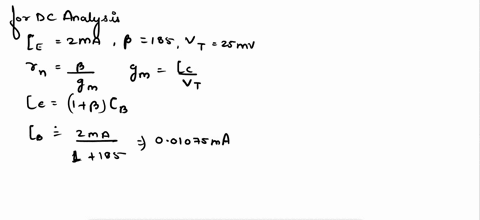 for DC Analysis
IE = 2mA , β = 185, VT = 25mV
rπ = β/gm gm = Ic/VT
Ie = (1+β) IB
IB = 2mA/(1+185) ⇒ 0.01075mA